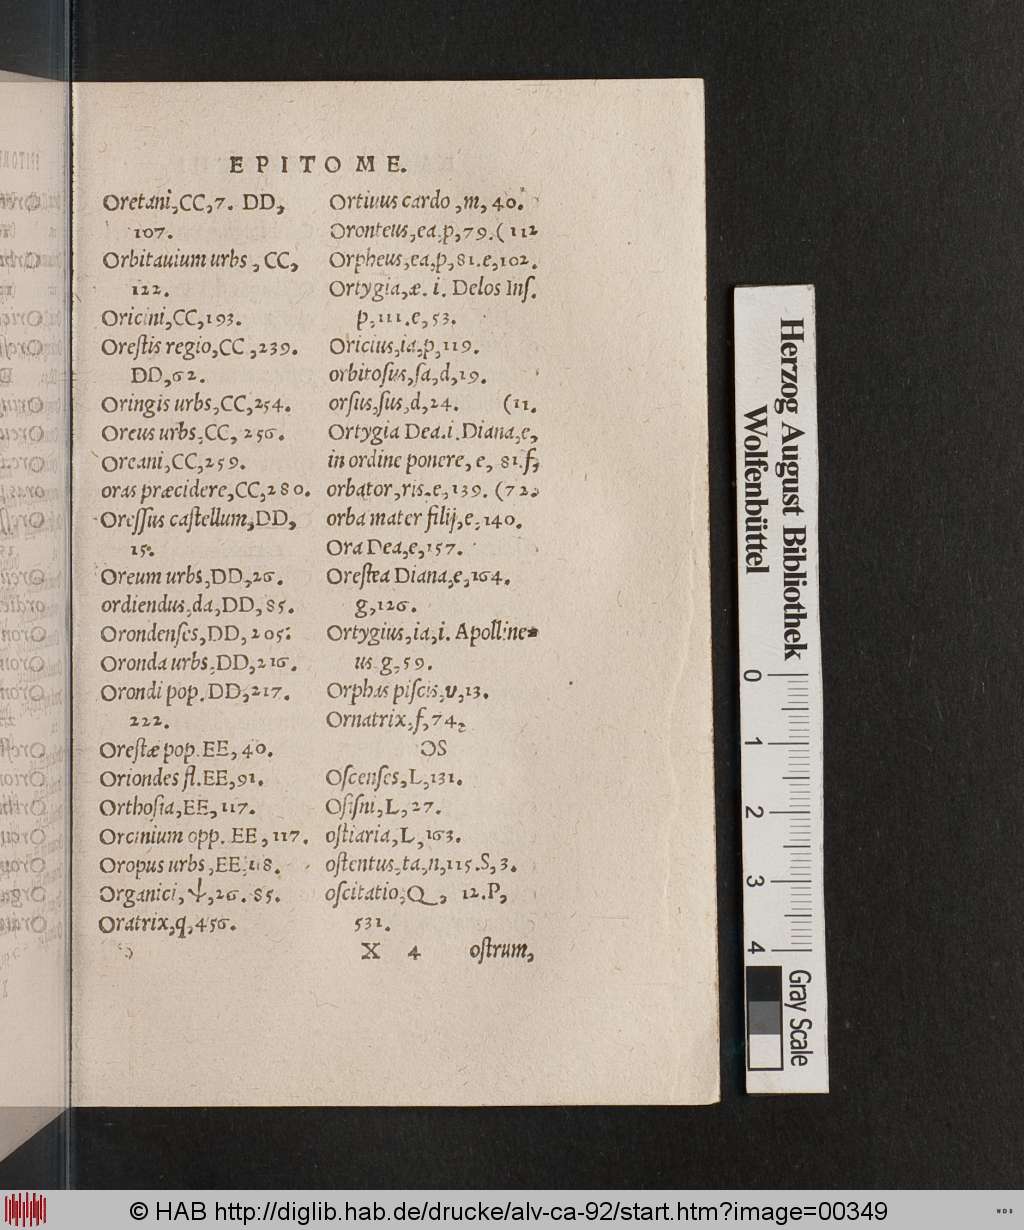 EPITOME.
Oretani,CC,7. DD,
107.
Orbitauium urbs, CC,
122.
Oricini,CC,193.
Orestis regio,CC,239.
DD,62.
Oringis urbs,CC,254.
Oreus urbs,CC, 256.
Oreani,CC,259.
oras præcidere,CC,280.
Oressus castellum,DD,
15.
Oreum urbs,DD,26.
ordiendus,da,DD,85.
Orondenses,DD,205.
Oronda urbs,DD,216.
Orondi pop.DD,217.
222.
Orestæ pop.EE,40.
Oriondes fl.EE,91.
Orthosia,EE,117.
Orcinium opp. EE,117.
Oropus urbs,EE,118.
Organici,Ψ,26. 85.
Oratrix,q,456.
Ortiuus cardo,m, 40.
Oronteus,ea,p,79.(112
Orpheus,ea,p,81.e,102.
Ortygia,æ. i. Delos Ins.
p,111.e,53.
Oricius,ia,p,119.
orbitosus,sa,d,19.
orsus,sus,d,24. (11.
Ortygia Dea.i.Diana,e,
in ordine ponere, e, 81.f,
orbator,ris.e,139. (72.
orba mater filij,e,140.
Ora Dea,e,157.
Orestea Diana,e,164.
g,126.
Ortygius,ia,i. Apolline-
us g,59.
Orphas piscis,v,13.
Ornatrix,f,74.
OS
Oscenses,L,131.
Osisni,L,27.
ostiaria,L,163.
ostentus,ta,n,115.S,3.
oscitatio,Q, 12.P,
531.
X 4 ostrum,
Herzog August Bibliothek
Wolfenbüttel
0 1 2 3 4
Gray Scale
© HAB http://diglib.hab.de/drucke/alv-ca-92/start.htm?image=00349